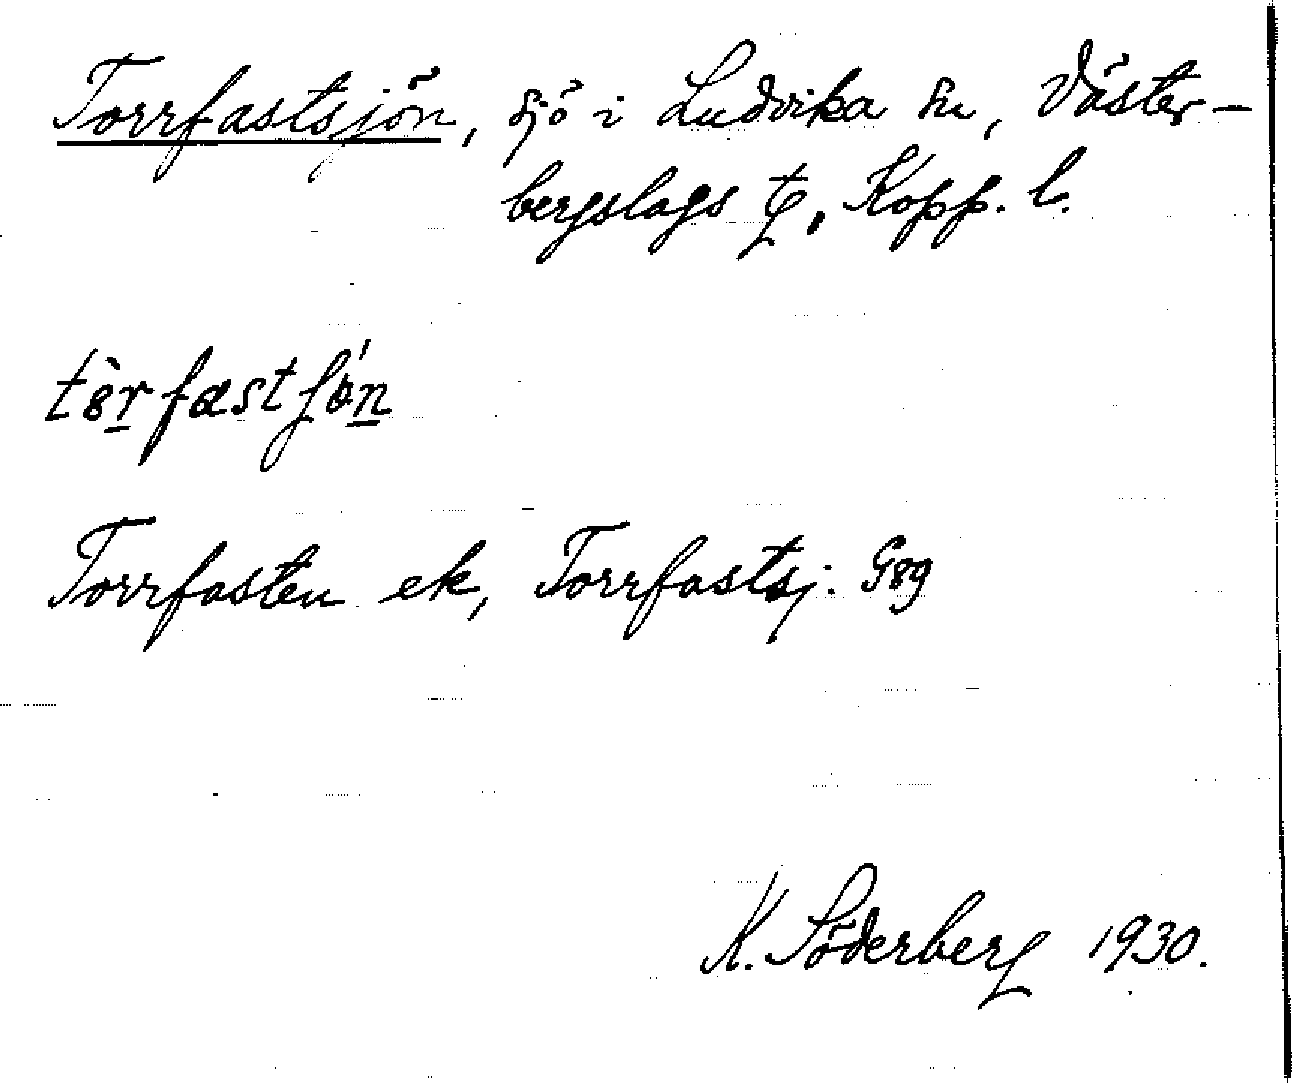 Torrfastsjön, sjö i Ludvika sn, Väster-
bergslags tg, Kopp. l.
Torrfasten ek, Torrfastsj. G89
K. Söderberg 1930.